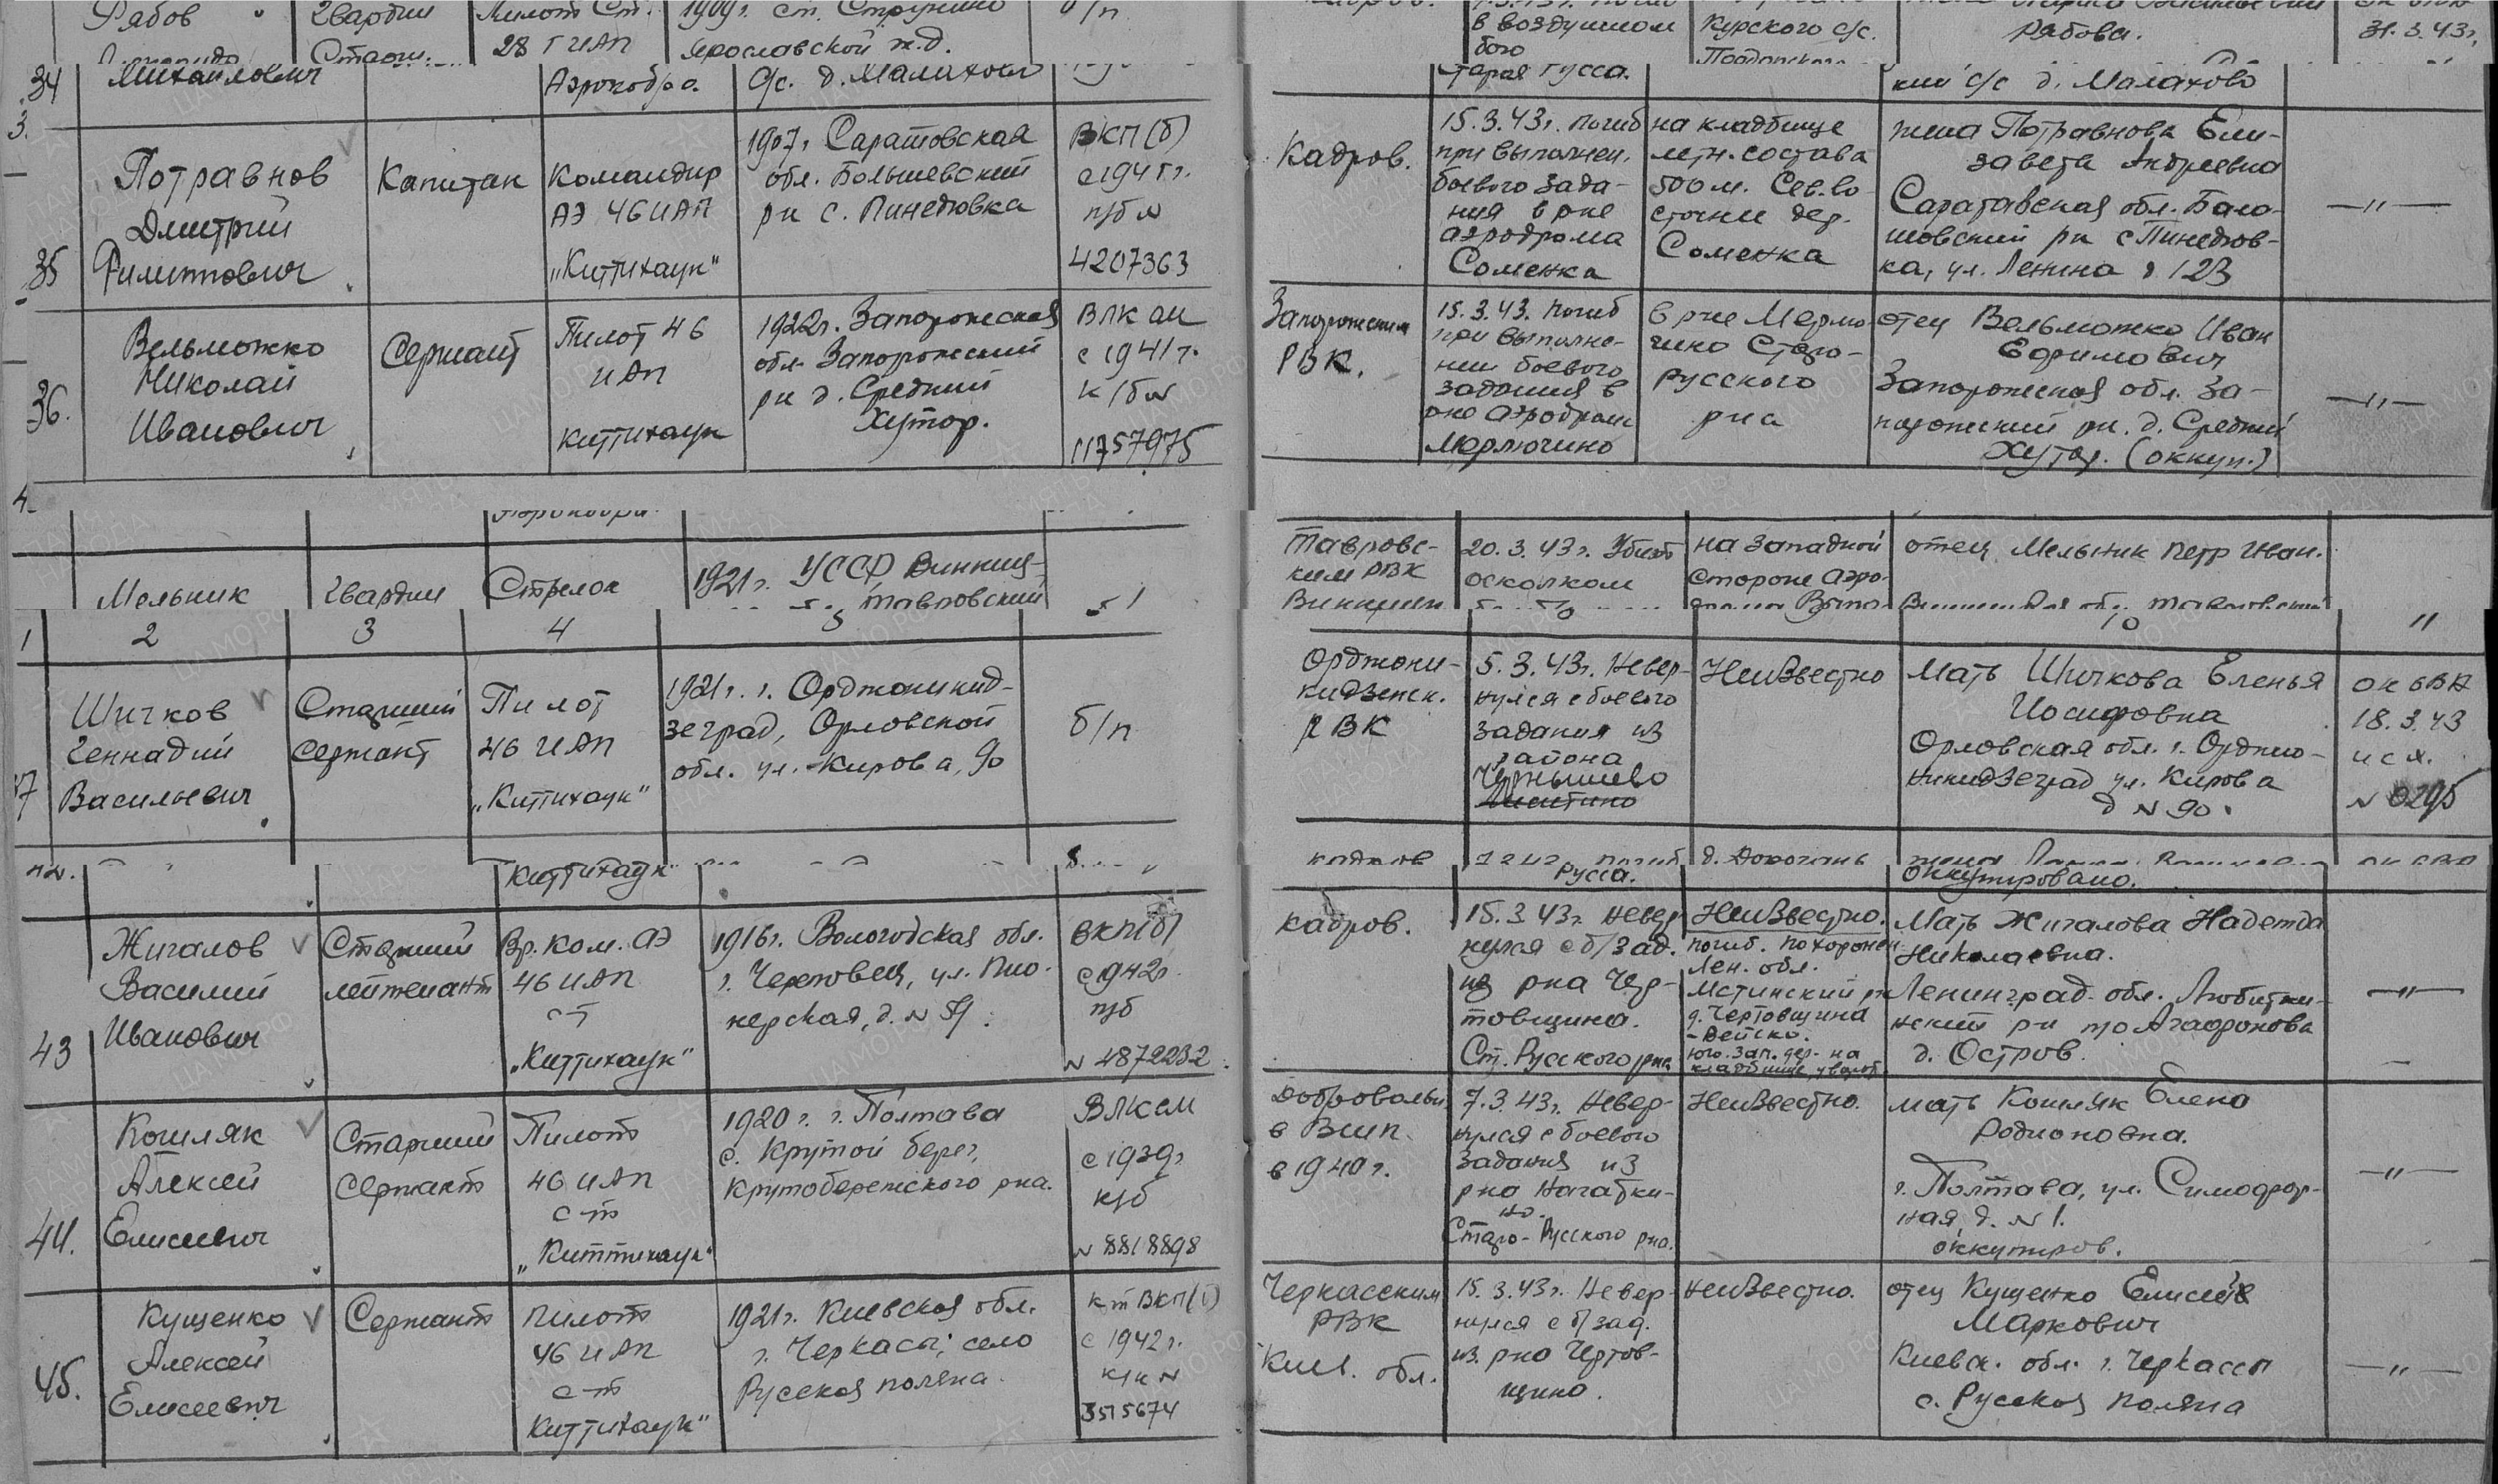 Рябов
Гвардии
Пилот Ст.
1909г. ст. Струнино
б/п
Старш.
28 ГИАП
Ярославской ж.д.
в воздушном
бою
Курского с/с.
Рябова.
31.3.43г.
34
Михайлович
Аэрокобра.
с/с. д. Малахово
Старая Русса.
кий с/с д. Малахово
35
Потравнов
Дмитрий
Филиппович
Капитан
Командир
АЭ 46 ИАП
"Киттихаук"
1907г. Саратовская
обл. Болышевский
рн с. Пинеровка
ВКП(б)
с 194 г.
п/б №
4207363
Кадров.
15.3.43г. погиб
при выполнен.
боевого зада-
ния в рне
аэродрома
Соменка
на кладбище
летн. состава
500 м. Сев. во-
сточнее дер.
Соменка
жена Потравнова Ели-
завета Андреевна
Саратавская обл. Бала-
шовский рн с Пинеров-
ка, ул. Ленина д 123
—"—
36.
Вельможко
Николай
Иванович
Сержант
Пилот 46
ИАП
Киттихаук
1922г. Запорожская
обл. Запорожский
рн д. Средний
Хутор.
ВЛКСМ
с 1941г.
к/б №
11757975
Запорожским
РВК.
15.3.43. погиб
при выполне-
нии боевого
задания в
рне аэродром
Мерлючино
в рне Мерлю
чино Старо-
русского
рна
отец Вельможко Иван
Ефимович
Запорожская обл. За-
порожский рн. д. Средний
Хутор. (оккуп.)
—"—
Мельник
Гвардии
Стрелок
1921г. УССР Винниц-
Тавровский
Тавровс-
ким РВК
20.3.43г. Убит
осколком
на западной
стороне аэро-
отец Мельник Петр Иван.
1
2
3
4
5
10
"
Шичков
Геннадий
Васильевич
Старший
сержант
Пилот
46 ИАП
"Киттихаук"
1921г. г. Орджоникид-
зеград, Орловской
обл. ул. Кирова, 90
б/п
Орджони-
кидзенск.
РВК
5.3.43г. Невер-
нулся с боевого
задания из
района
Чернышево
Неизвестно
Мать Шичкова Еленья
Иосифовна
Орловская обл. г. Орджо-
никидзеград ул. Кирова
д № 90.
ОК 6ВА
18.3.43
исх.
№ 0295
Киттихаук
Русса.
оккупировано.
43
Жигалов
Василий
Иванович
Старший
лейтенант
Вр. ком. АЭ
46 ИАП
с-т
"Киттихаук"
1916г. Вологодская обл.
г. Череповец, ул. Пио-
нерская, д. №
ВКП(б)
с 1942г.
п/б
№ 4872232
кадров.
15.3.43г. Невер
нулся с б/зад.
из рна Чер-
товщина.
Ст. Русского рна
Неизвестно.
погиб. похоронен
Лен. обл.
Мстинский рн
д. Чертовщина
юго. зап. дер. на
Мать Жигалова Надежда
Николаевна.
Ленинград. обл. Любыти-
нский рн п/о Агафонова
д. Остров.
—"—
44.
Кошляк
Алексей
Елисеевич
Старший
сержант
Пилот
46 ИАП
с-т
"Киттихаук"
1920г. г. Полтава
с. Крутой берег,
Крутобережского рна.
ВЛКСМ
с 1939г
к/б
№ 8818898
Добровольн.
в
в 1940г.
7.3.43г. Невер-
нулся с боевого
задания из
рна Нагатки-
но.
Старо-Русского рна.
Неизвестно.
мать Кошляк Елена
Родионовна.
г. Полтава, ул. Симофор-
ная, д. № 1.
оккупиров.
—"—
45.
Кущенко
Алексей
Елисеевич
Сержант
Пилот
46 ИАП
с-т
Киттихаук"
1921г. Киевская обл.
г. Черкасы; село
Русская поляна.
кт ВКП(б)
с 1942г.
к/к №
3515674
Черкасским
РВК
Киев. обл.
15.3.43г. Невер-
нулся с б/зад.
из. рна Чертов-
щино.
Неизвестно.
отец Кущенко Елисей
Маркович
Киевск. обл. г. Черкассы
с. Русская поляна
—"—